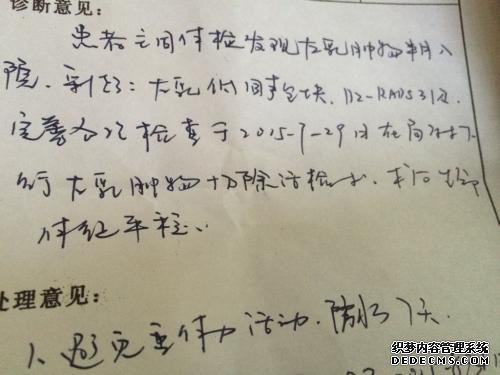 诊断意见：
患者之间体检发现左乳肿物半月入
院。乳经：左乳低回声结块，BI-RADS 3级，
完善各项检查于2015-7-29日在局麻下
行左乳肿物切除活检术，术后生命
体征平稳。
处理意见：
1、避免重体力活动，隔水7天。
织梦内容管理系统
DEDECMS.COM